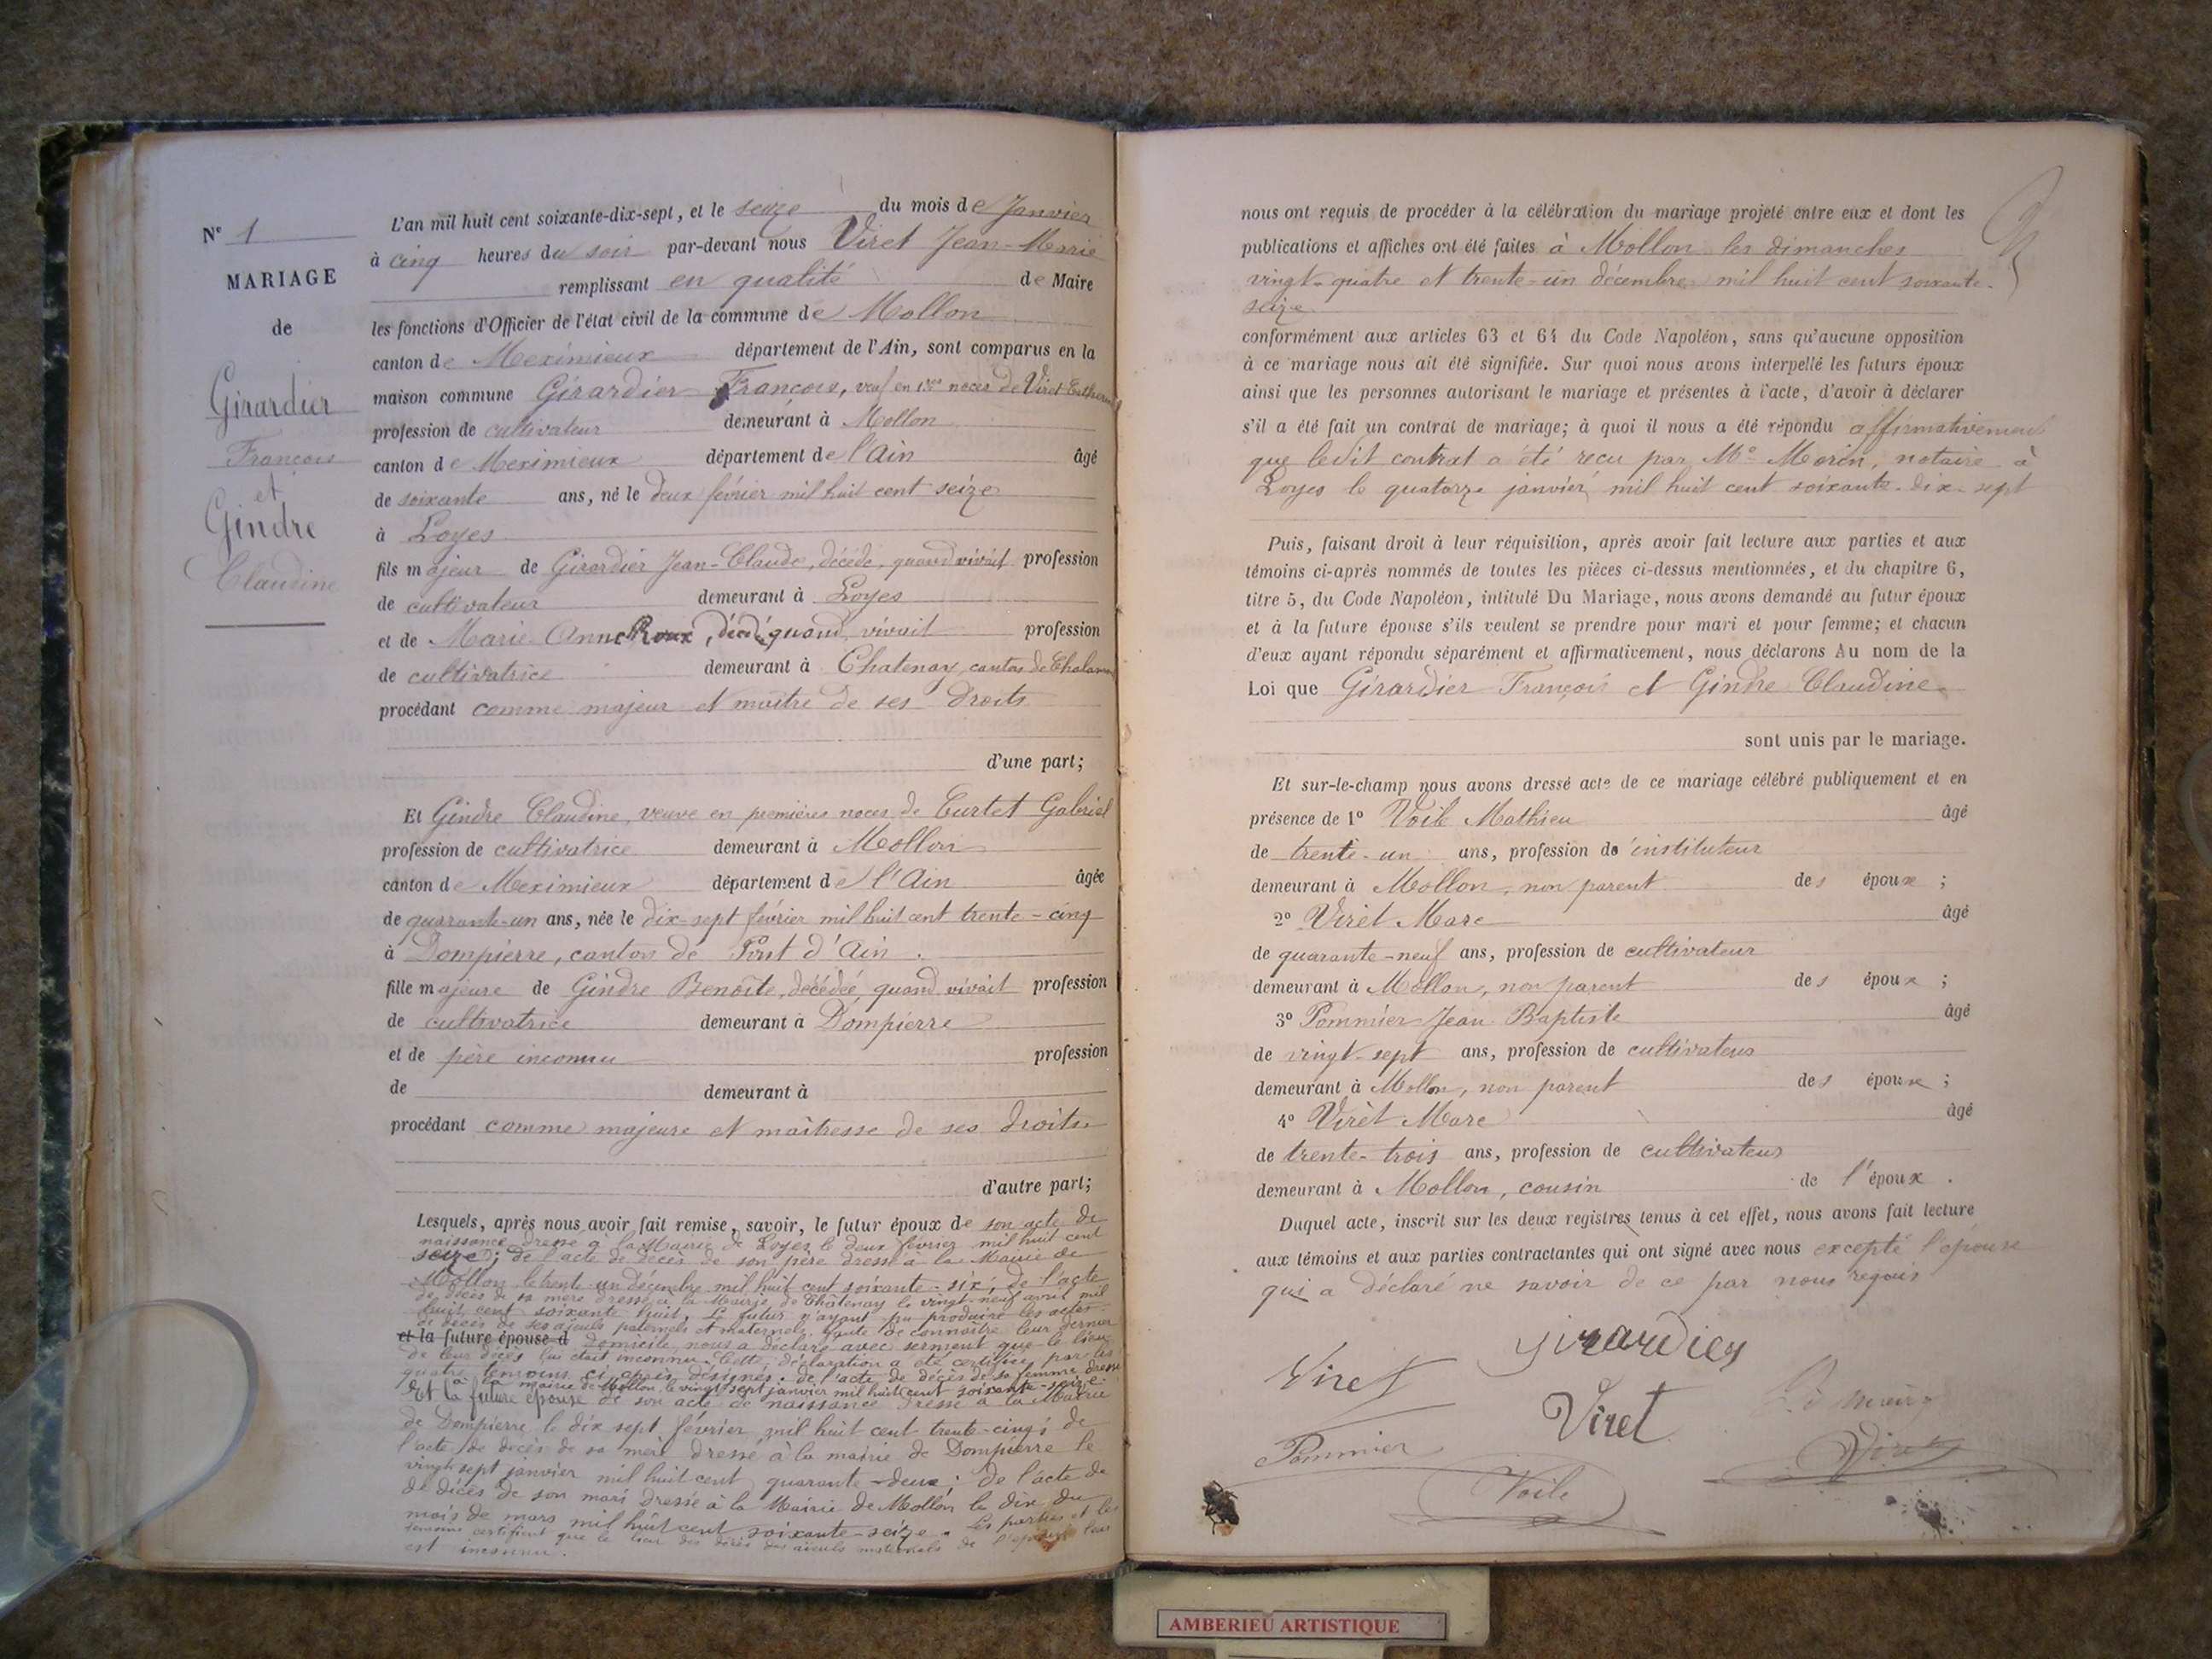 N° 1
MARIAGE
de
Girardier
François
et
Gindre
Claudine
L'an mil huit cent soixante-dix-sept, et le seize du mois de Janvier
à cinq heures du soir par-devant nous Viret Jean-Marie
remplissant en qualité de Maire
les fonctions d'Officier de l'état civil de la commune de Mollon
canton de Meximieux département de l'Ain, sont comparus en la
maison commune Girardier François, veuf en 1ères noces de Viret
profession de cultivateur demeurant à Mollon
canton de Meximieux département de l'Ain âgé
de soixante ans, né le deux février mil huit cent seize
à Loyes
fils majeur de Girardier Jean-Claude, décédé, quand vivait profession
de cultivateur demeurant à Loyes
et de Marie Anne Roux, décédé quand vivait profession
de cultivatrice demeurant à Chatenay, canton de Chalamont
procédant comme majeur et maître de ses droits
d'une part;
Et Gindre Claudine, veuve en premières noces de Curtet Gabriel
profession de cultivatrice demeurant à Mollon
canton de Meximieux département de l'Ain âgée
de quarante-un ans, née le dix-sept février mil huit cent trente-cinq
à Dompierre, canton de Pont d'Ain.
fille majeure de Gindre Benoîte, décédée, quand vivait profession
de cultivatrice demeurant à Dompierre
et de père inconnu profession
de demeurant à
procédant comme majeure et maîtresse de ses droits
d'autre part;
Lesquels, après nous avoir fait remise, savoir, le futur époux de son acte de
naissance dressé à la Mairie de Loyes le deux février mil huit cent
seize; de l'acte de décès de son père dressé à la Mairie de
Mollon le trente-un décembre mil huit cent soixante-six; de l'acte
de décès de sa mère dressé à la Mairie de Châtenay le vingt-neuf avril mil
huit cent soixante huit. Le futur n'ayant pu produire les actes
de décès de ses aïeuls paternels et maternels, faute de connaître leur dernier
et la future épouse d domicile, nous a déclaré avec serment que le lieu
de leur décès lui était inconnu. Cette déclaration a été certifiée par les
quatre témoins ci-après désignés. de l'acte de décès de sa femme dressé
à la mairie de Mollon, le vingt-sept janvier mil huit cent soixante-seize.
Et la future épouse de son acte de naissance dressé à la Mairie
de Dompierre le dix sept février mil huit cent trente-cinq; de
l'acte de décès de sa mère dressé à la mairie de Dompierre le
vingt sept janvier mil huit cent quarante-deux; de l'acte de
de décès de son mari dressé à la Mairie de Mollon le dix du
mois de mars mil huit cent soixante-seize. Les parties et les
témoins certifient que le lieu des décès des aïeuls maternels de l'épouse leur
est inconnu.
nous ont requis de procéder à la célébration du mariage projeté entre eux et dont les
publications et affiches ont été faites à Mollon les dimanches
vingt-quatre et trente-un décembre mil huit cent soixante-
seize
conformément aux articles 63 et 64 du Code Napoléon, sans qu'aucune opposition
à ce mariage nous ait été signifiée. Sur quoi nous avons interpellé les futurs époux
ainsi que les personnes autorisant le mariage et présentes à l'acte, d'avoir à déclarer
s'il a été fait un contrat de mariage; à quoi il nous a été répondu affirmativement
que ledit contrat a été reçu par Me Morin, notaire à
Loyes le quatorze janvier mil huit cent soixante-dix-sept
Puis, faisant droit à leur réquisition, après avoir fait lecture aux parties et aux
témoins ci-après nommés de toutes les pièces ci-dessus mentionnées, et du chapitre 6,
titre 5, du Code Napoléon, intitulé Du Mariage, nous avons demandé au futur époux
et à la future épouse s'ils veulent se prendre pour mari et pour femme; et chacun
d'eux ayant répondu séparément et affirmativement, nous déclarons Au nom de la
Loi que Girardier François et Gindre Claudine
sont unis par le mariage.
Et sur-le-champ nous avons dressé acte de ce mariage célébré publiquement et en
présence de 1° Voile Mathieu âgé
de trente-un ans, profession de instituteur
demeurant à Mollon, non parent des époux;
2° Viret Marc âgé
de quarante-neuf ans, profession de cultivateur
demeurant à Mollon, non parent des époux;
3° Pommier Jean-Baptiste âgé
de vingt-sept ans, profession de cultivateur
demeurant à Mollon, non parent des époux;
4° Viret Marc âgé
de trente-trois ans, profession de cultivateur
demeurant à Mollon, cousin de l'époux.
Duquel acte, inscrit sur les deux registres tenus à cet effet, nous avons fait lecture
aux témoins et aux parties contractantes qui ont signé avec nous excepté l'épouse
qui a déclaré ne savoir de ce par nous requis
Girardier
Viret
Viret
Pommier
Voile
Viret
AMBERIEU ARTISTIQUE